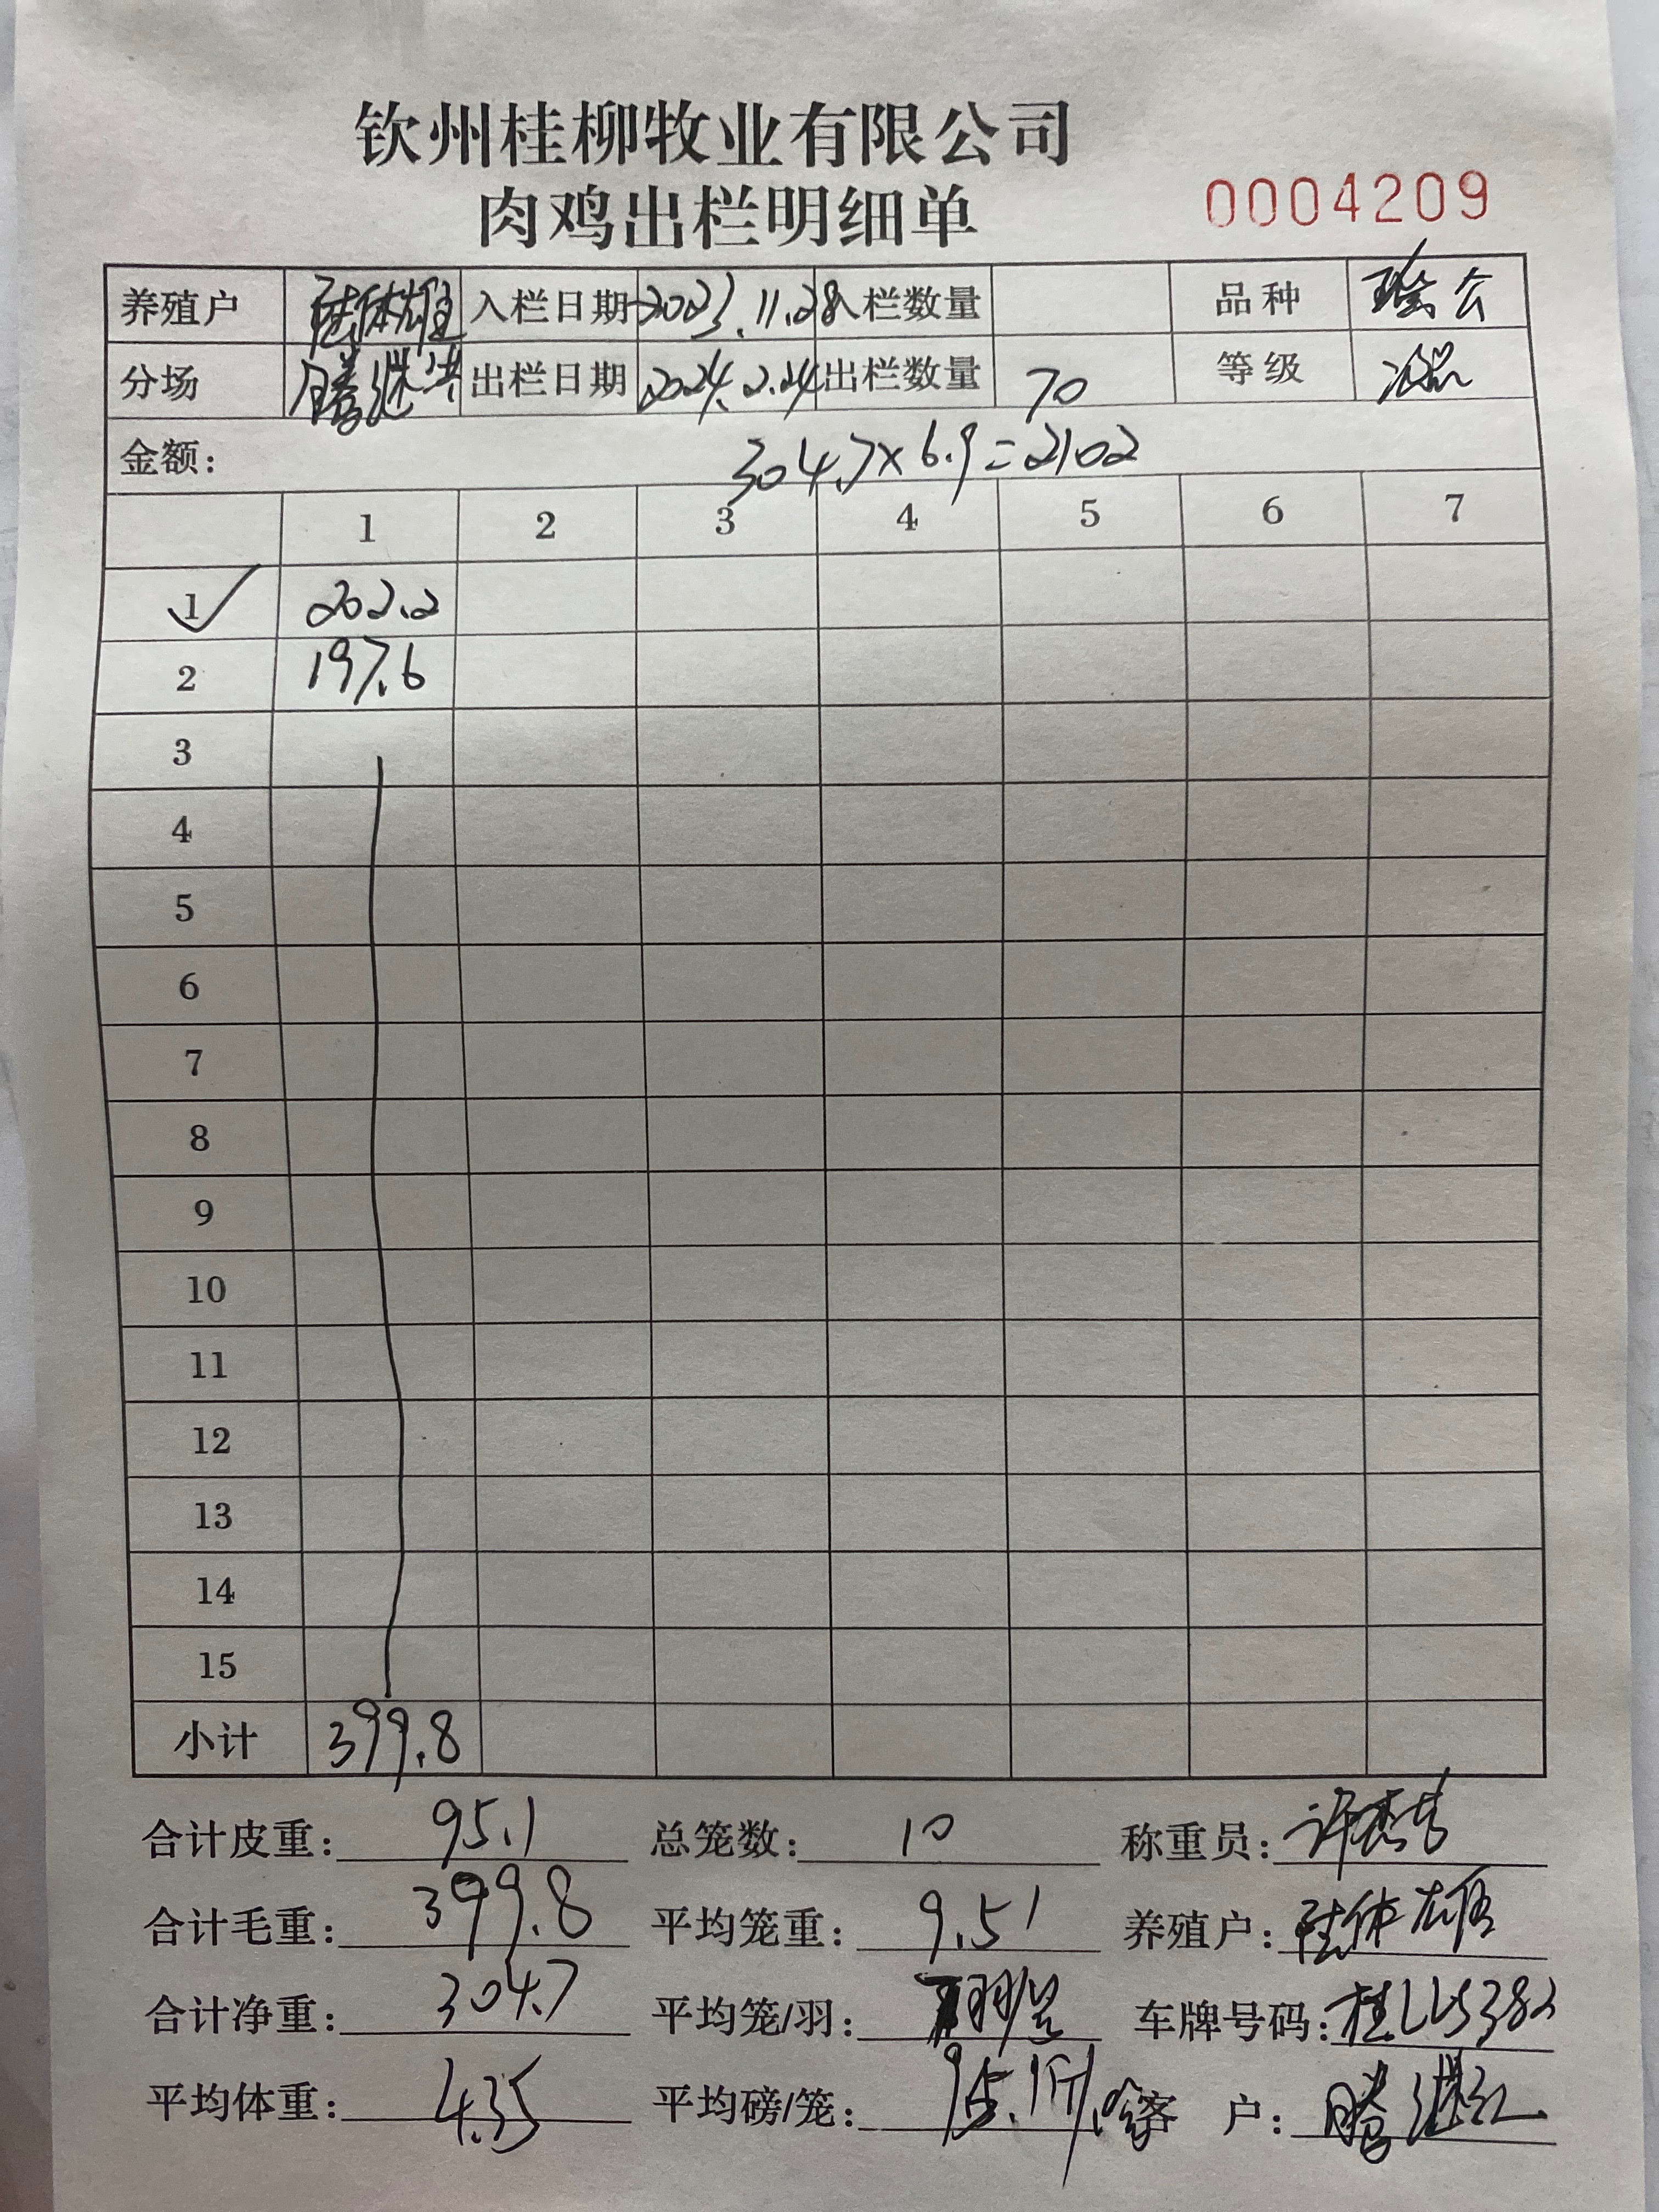 钦州桂柳牧业有限公司
肉鸡出栏明细单
0004209
养殖户 陆体雄 入栏日期 2023.11.28 入栏数量 品种
分场 出栏日期 2024.2.24 出栏数量 70 等级
金额: 304.7×6.9=2102
1 2 3 4 5 6 7
1 202.2
2 197.6
3
4
5
6
7
8
9
10
11
12
13
14
15
小计 399.8
合计皮重: 95.1 总笼数: 10 称重员:
合计毛重: 399.8 平均笼重: 9.51 养殖户: 陆体雄
合计净重: 304.7 平均笼/羽: 7羽/笼 车牌号码: 桂LLS382
平均体重: 4.35 平均磅/笼: 95.1斤 客 户: 滕继红